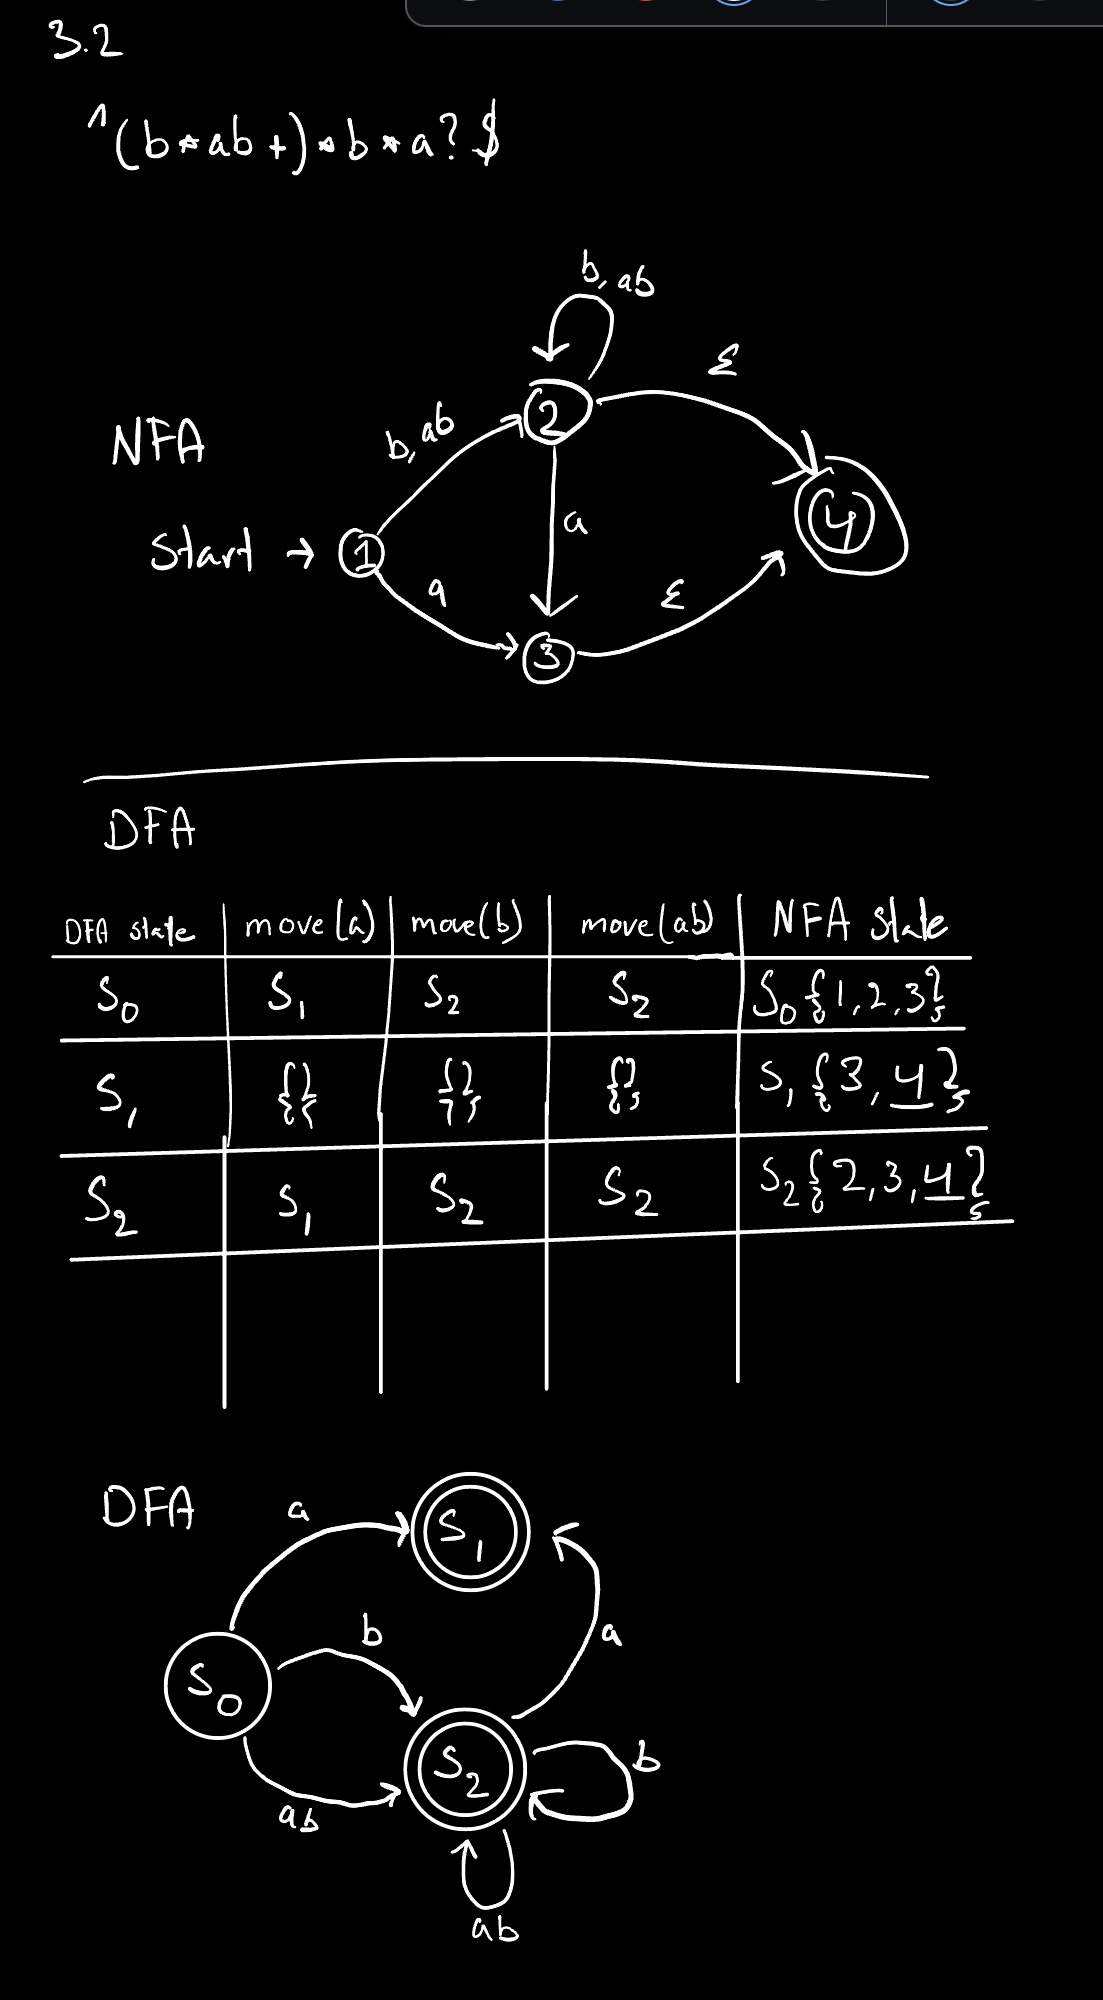 3.2
^(b*ab+)*b*a?$
b, ab
ε
NFA
b, ab
2
4
a
Start → 1
a
ε
3
DFA
DFA state | move(a) | move(b) | move(ab) | NFA state
S0 | S1 | S2 | S2 | S0{1,2,3}
S1 | {} | {} | {} | S1{3,4}
S2 | S1 | S2 | S2 | S2{2,3,4}
DFA
a
S1
b
a
S0
S2
b
ab
ab